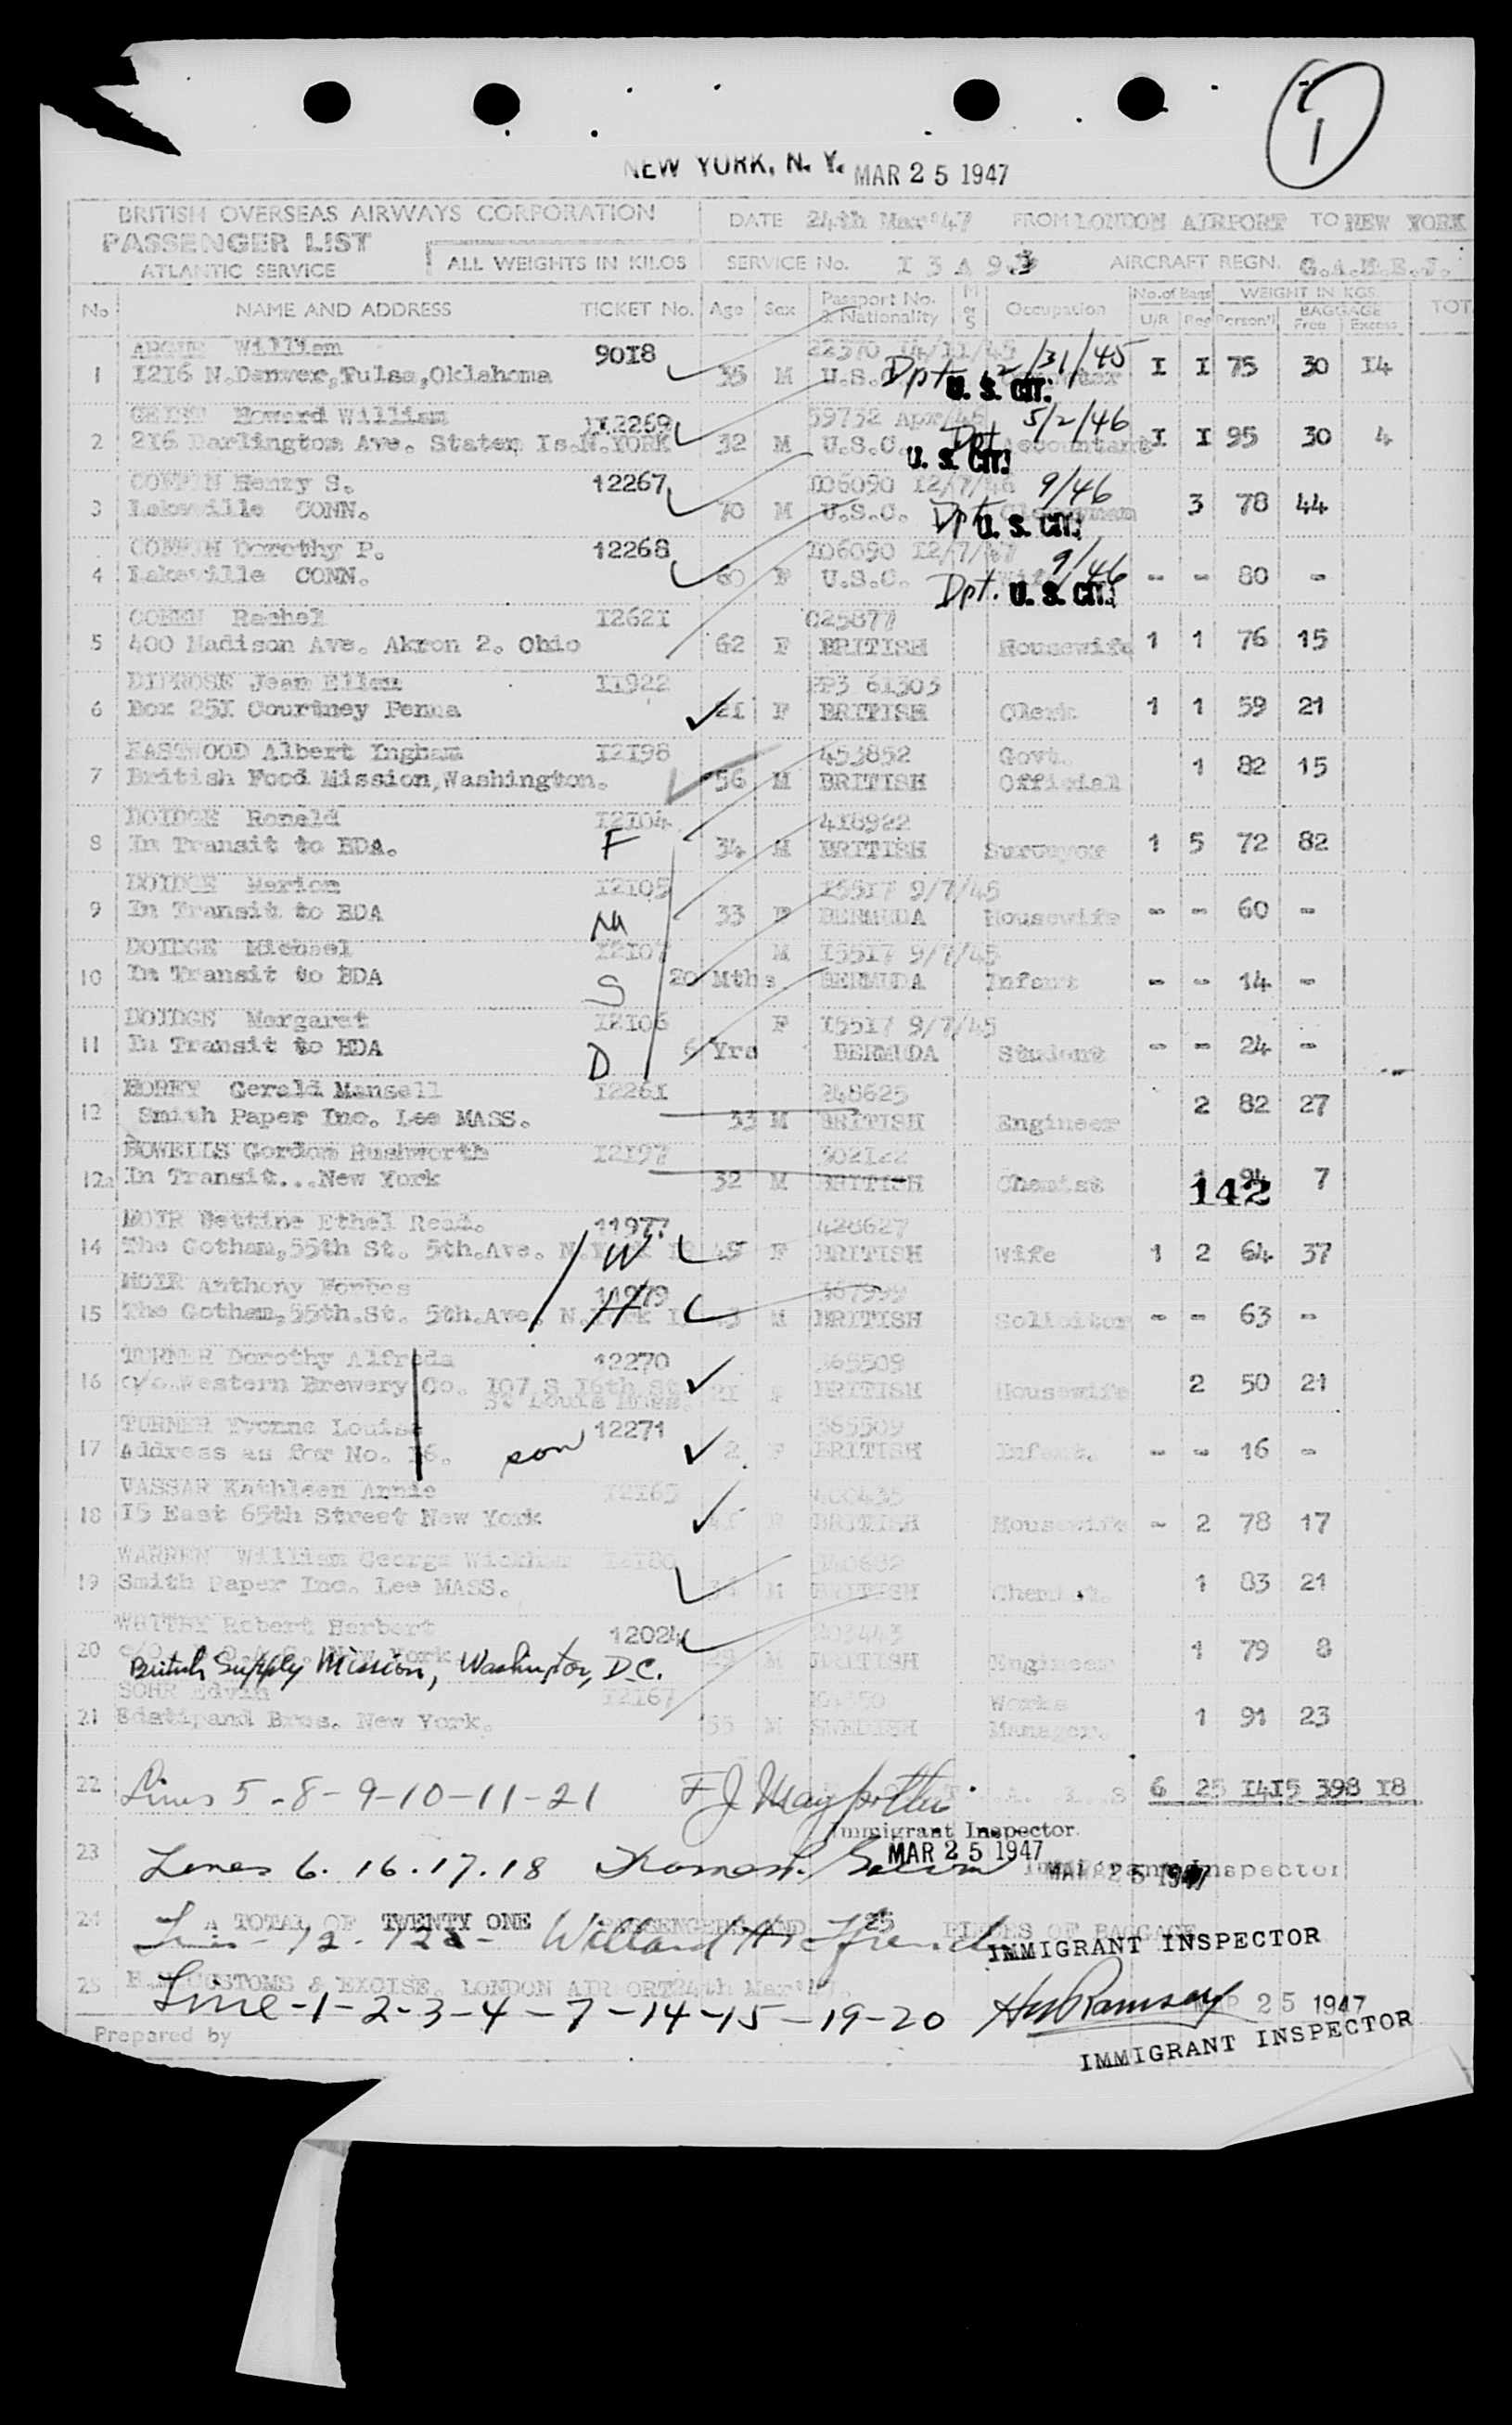 1
NEW YORK, N. Y. MAR 25 1947
BRITISH OVERSEAS AIRWAYS CORPORATION
PASSENGER LIST
ATLANTIC SERVICE
ALL WEIGHTS IN KILOS
DATE 24th Mar '47 FROM LONDON AIRPORT TO NEW YORK
SERVICE No. I 3 A 93 AIRCRAFT REGN.
No NAME AND ADDRESS TICKET No. Age Sex Passport No. & Nationality M or S Occupation No. of Bags U/R Reg WEIGHT IN KGS. Person'l BAGGAGE Free Excess TOT
William 9018
1 1216 N.Denver,Tulsa,Oklahoma 35 M U.S.C. Dpt. 12/31/45 U. S. CIT. I I 75 30 14
Howard William 112269 59732 Apr/46 5/2/46
2 216 Darlington Ave. Staten Is.N.YORK 32 M U.S.C. Dpt Accountant U. S. CIT. I I 95 30 4
Henry S. 12267 106090 12/7/46 9/46
3 Lakeville CONN. 70 M U.S.C. Dpt. U. S. CIT. 3 78 44
Dorothy P. 12268 106090 9/46
4 Lakeville CONN. 60 F U.S.C. Wife Dpt. U. S. CIT. - - 80 -
COHEN Rachel 12621 C25877
5 400 Madison Ave. Akron 2. Ohio 62 F BRITISH Housewife 1 1 76 15
DIPROSE Jean Ellen 11922 61303
6 Box 251 Courtney Penna 21 F BRITISH Clerk 1 1 59 21
EASTWOOD Albert Ingham 12198 453852 Govt.
7 British Food Mission,Washington. 56 M BRITISH Official 1 82 15
DOIDGE Ronald 12104 418922
8 In Transit to BDA. F 34 M BRITISH Surveyor 1 5 72 82
DOIDGE Marion 12105 15517 9/7/45
9 In Transit to BDA M 33 F BERMUDA Housewife - - 60 -
DOIDGE Michael 12107 M 15517 9/7/45
10 In Transit to BDA S 20 Mths BERMUDA Infant - - 14 -
DOIDGE Margaret 12106 F 15517 9/7/45
11 In Transit to BDA D 6 Yrs BERMUDA Student - - 24 -
Gerald Mansell 12261 248625
12 Smith Paper Inc. Lee MASS. 33 M BRITISH Engineer 2 82 27
Gordon Rushworth 12197 302122
12a In Transit...New York 32 M BRITISH Chemist 1 94 7
142
MOIR Bettine Ethel Read. 11977 428627
14 The Gotham,55th St. 5th.Ave. N.York W 45 F BRITISH Wife 1 2 64 37
MOIR Anthony Forbes 11979
15 The Gotham,55th.St. 5th.Ave. N.York H M BRITISH Solicitor - - 63 -
TURNER Dorothy Alfreda 12270 365509
16 c/o.Western Brewery Co. 107 S 16th St. 21 F BRITISH Housewife 2 50 21
St Louis
TURNER Yvonne Louise 12271 365509
17 Address as for No. 16. son 2 F BRITISH Infant. - - 16 -
VASSAR Kathleen Annie 12165 400435
18 15 East 65th Street New York F BRITISH Housewife - 2 78 17
WARREN William George Wickham
19 Smith Paper Inc. Lee MASS. M BRITISH Chemist. 1 83 21
Robert Herbert 12024
20 New York M BRITISH Engineer 1 79 8
British Supply Mission, Washington, D.C.
SOHR Edvin 12167 Works
21 Bros. New York. 55 M SWEDISH Manager. 1 91 23
22 Lines 5-8-9-10-11-21 6 25 1415 398 18
Immigrant Inspector
MAR 25 1947
23 Lines 6. 16. 17. 18 Immigrant Inspector
MAR 25 1947
24 A TOTAL OF TWENTY ONE PASSENGERS AND 25 PIECES OF BAGGAGE
Lines - 12. 12a - Willard H. French
IMMIGRANT INSPECTOR
25 H.M.CUSTOMS & EXCISE. LONDON AIRPORT 24th Mar'47.
Line-1-2-3-4-7-14-15-19-20 Ramsay MAR 25 1947
IMMIGRANT INSPECTOR
Prepared by